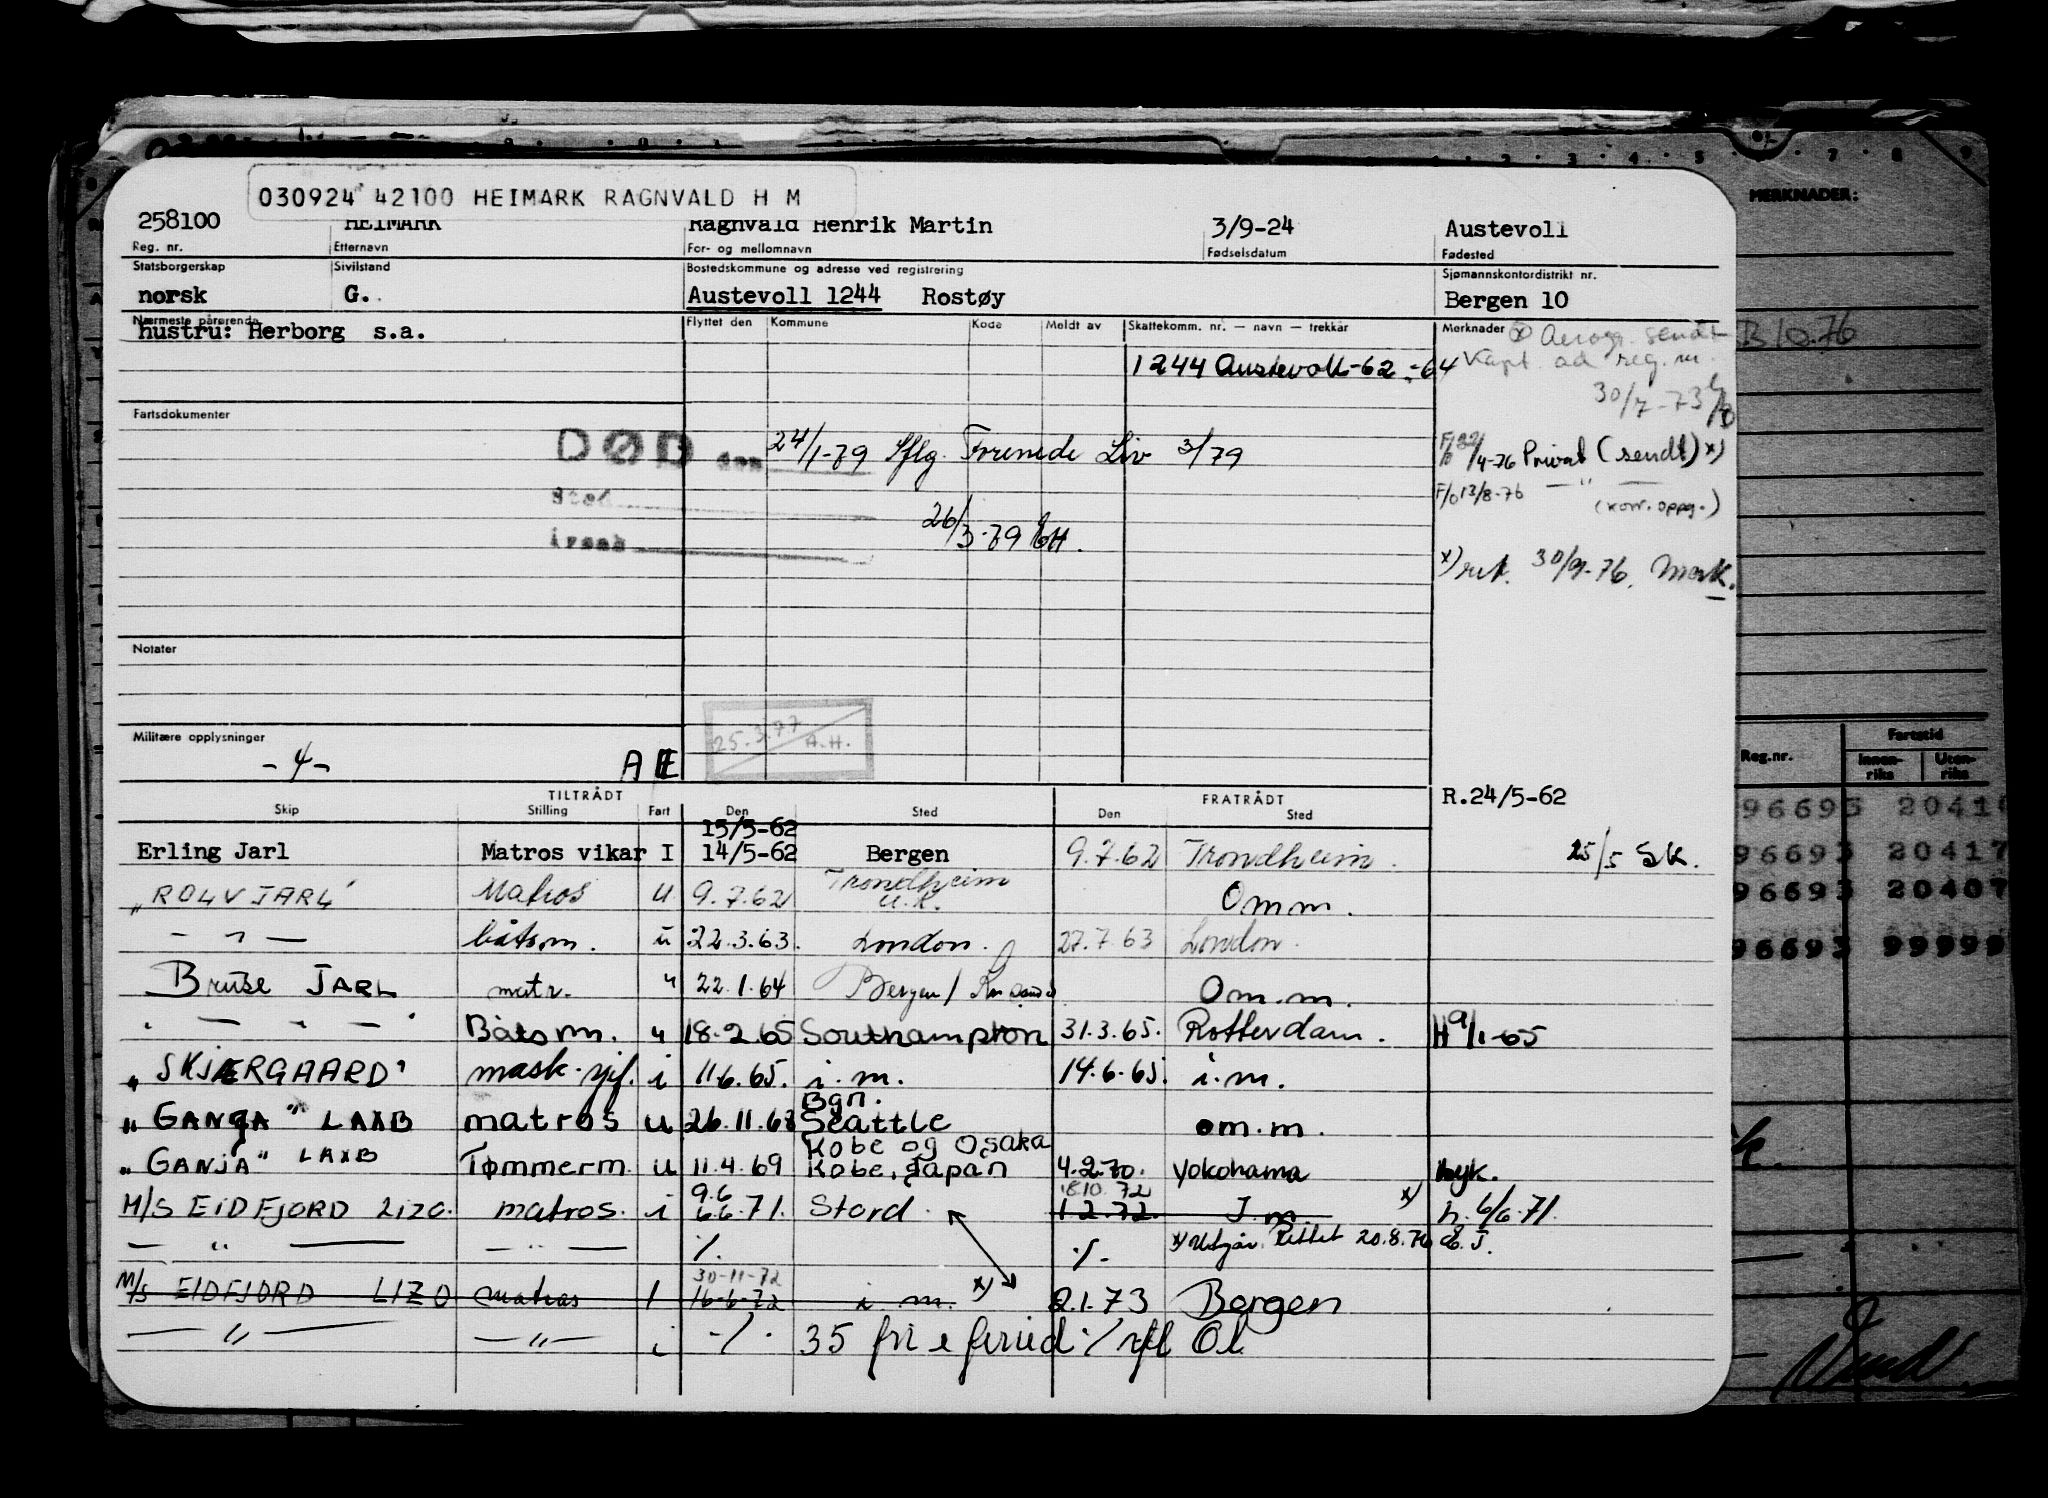 030924 42100 HEIMARK RAGNVALD H M
MERKNADER:
258100 HEIMARK Ragnvald Henrik Martin 3/9-24 Austevoll
Reg. nr. Etternavn For- og mellomnavn Fødselsdatum Fødested
Statsborgerskap Sivilstand Bostedskommune og adresse ved registrering Sjømannskontordistrikt nr.
norsk G. Austevoll 1244 Rostøy Bergen 10
Nærmeste pårørende Flyttet den Kommune Kode Meldt av Skattekomm. nr. — navn — trekkår Merknader
hustru: Herborg s.a.
B 10.76
1244 Austevoll-62 -64
30/7-73
Fartsdokumenter
DØD den 24/1-79 Iflg. Forenede Liv 3/79
4-76 Privat (sendt) x)
Sted
F/o 13/8-76 — " —
(korr. oppg.)
årsak
26/3-79
x) ret. 30/9-76.
Notater
25.3.77
A.H.
Militære opplysninger
-4- A E
Reg.nr. Fartstid
Innen-riks Uten-riks
TILTRÅDT FRATRÅDT R.24/5-62
Skip Stilling Fart Den Sted Den Sted
15/5-62
Erling Jarl Matros vikar I 14/5-62 Bergen 9.7.62 Trondheim. 25/5 SK.
„ROLV JARL" Matros u 9.7.62 Trondheim u.k. Omm.
— " — båtsm. u 22.3.63. London. 27.7.63 London.
Bruse JARL matr. " 22.1.64 Bergen/ Om.m.
" — " — " Båtsm. " 18.2.65 Southampton 31.3.65. Rotterdam. H 9/1-65
„SKJÆRGAARD" mask.sjf. i 11.6.65. i.m. 14.6.65. i.m.
Bgn.
„GANGA" LAXB matros u 26.11.68 Seattle om.m.
Kobe og Osaka
„GANJA" LAXB Tømmerm. u 11.4.69 Kobe, Japan 4.2.70. Yokohama
9.6 18.10.72
M/S EIDFJORD LIZO. matros. i 6.6.71. Stord. 1.2.72. I.m. x) h. 6/6.71.
— " — — " — ./. ./. x) Utgår. Rettet 20.8.76
30-11-72
M/S EIDFJORD LIZO matros I 16-6-72 i m. x) 2.1.73 Bergen
— " — — " — i ./. 35 fri e
96693 2041
96693 20417
96693 20407
96693 99999